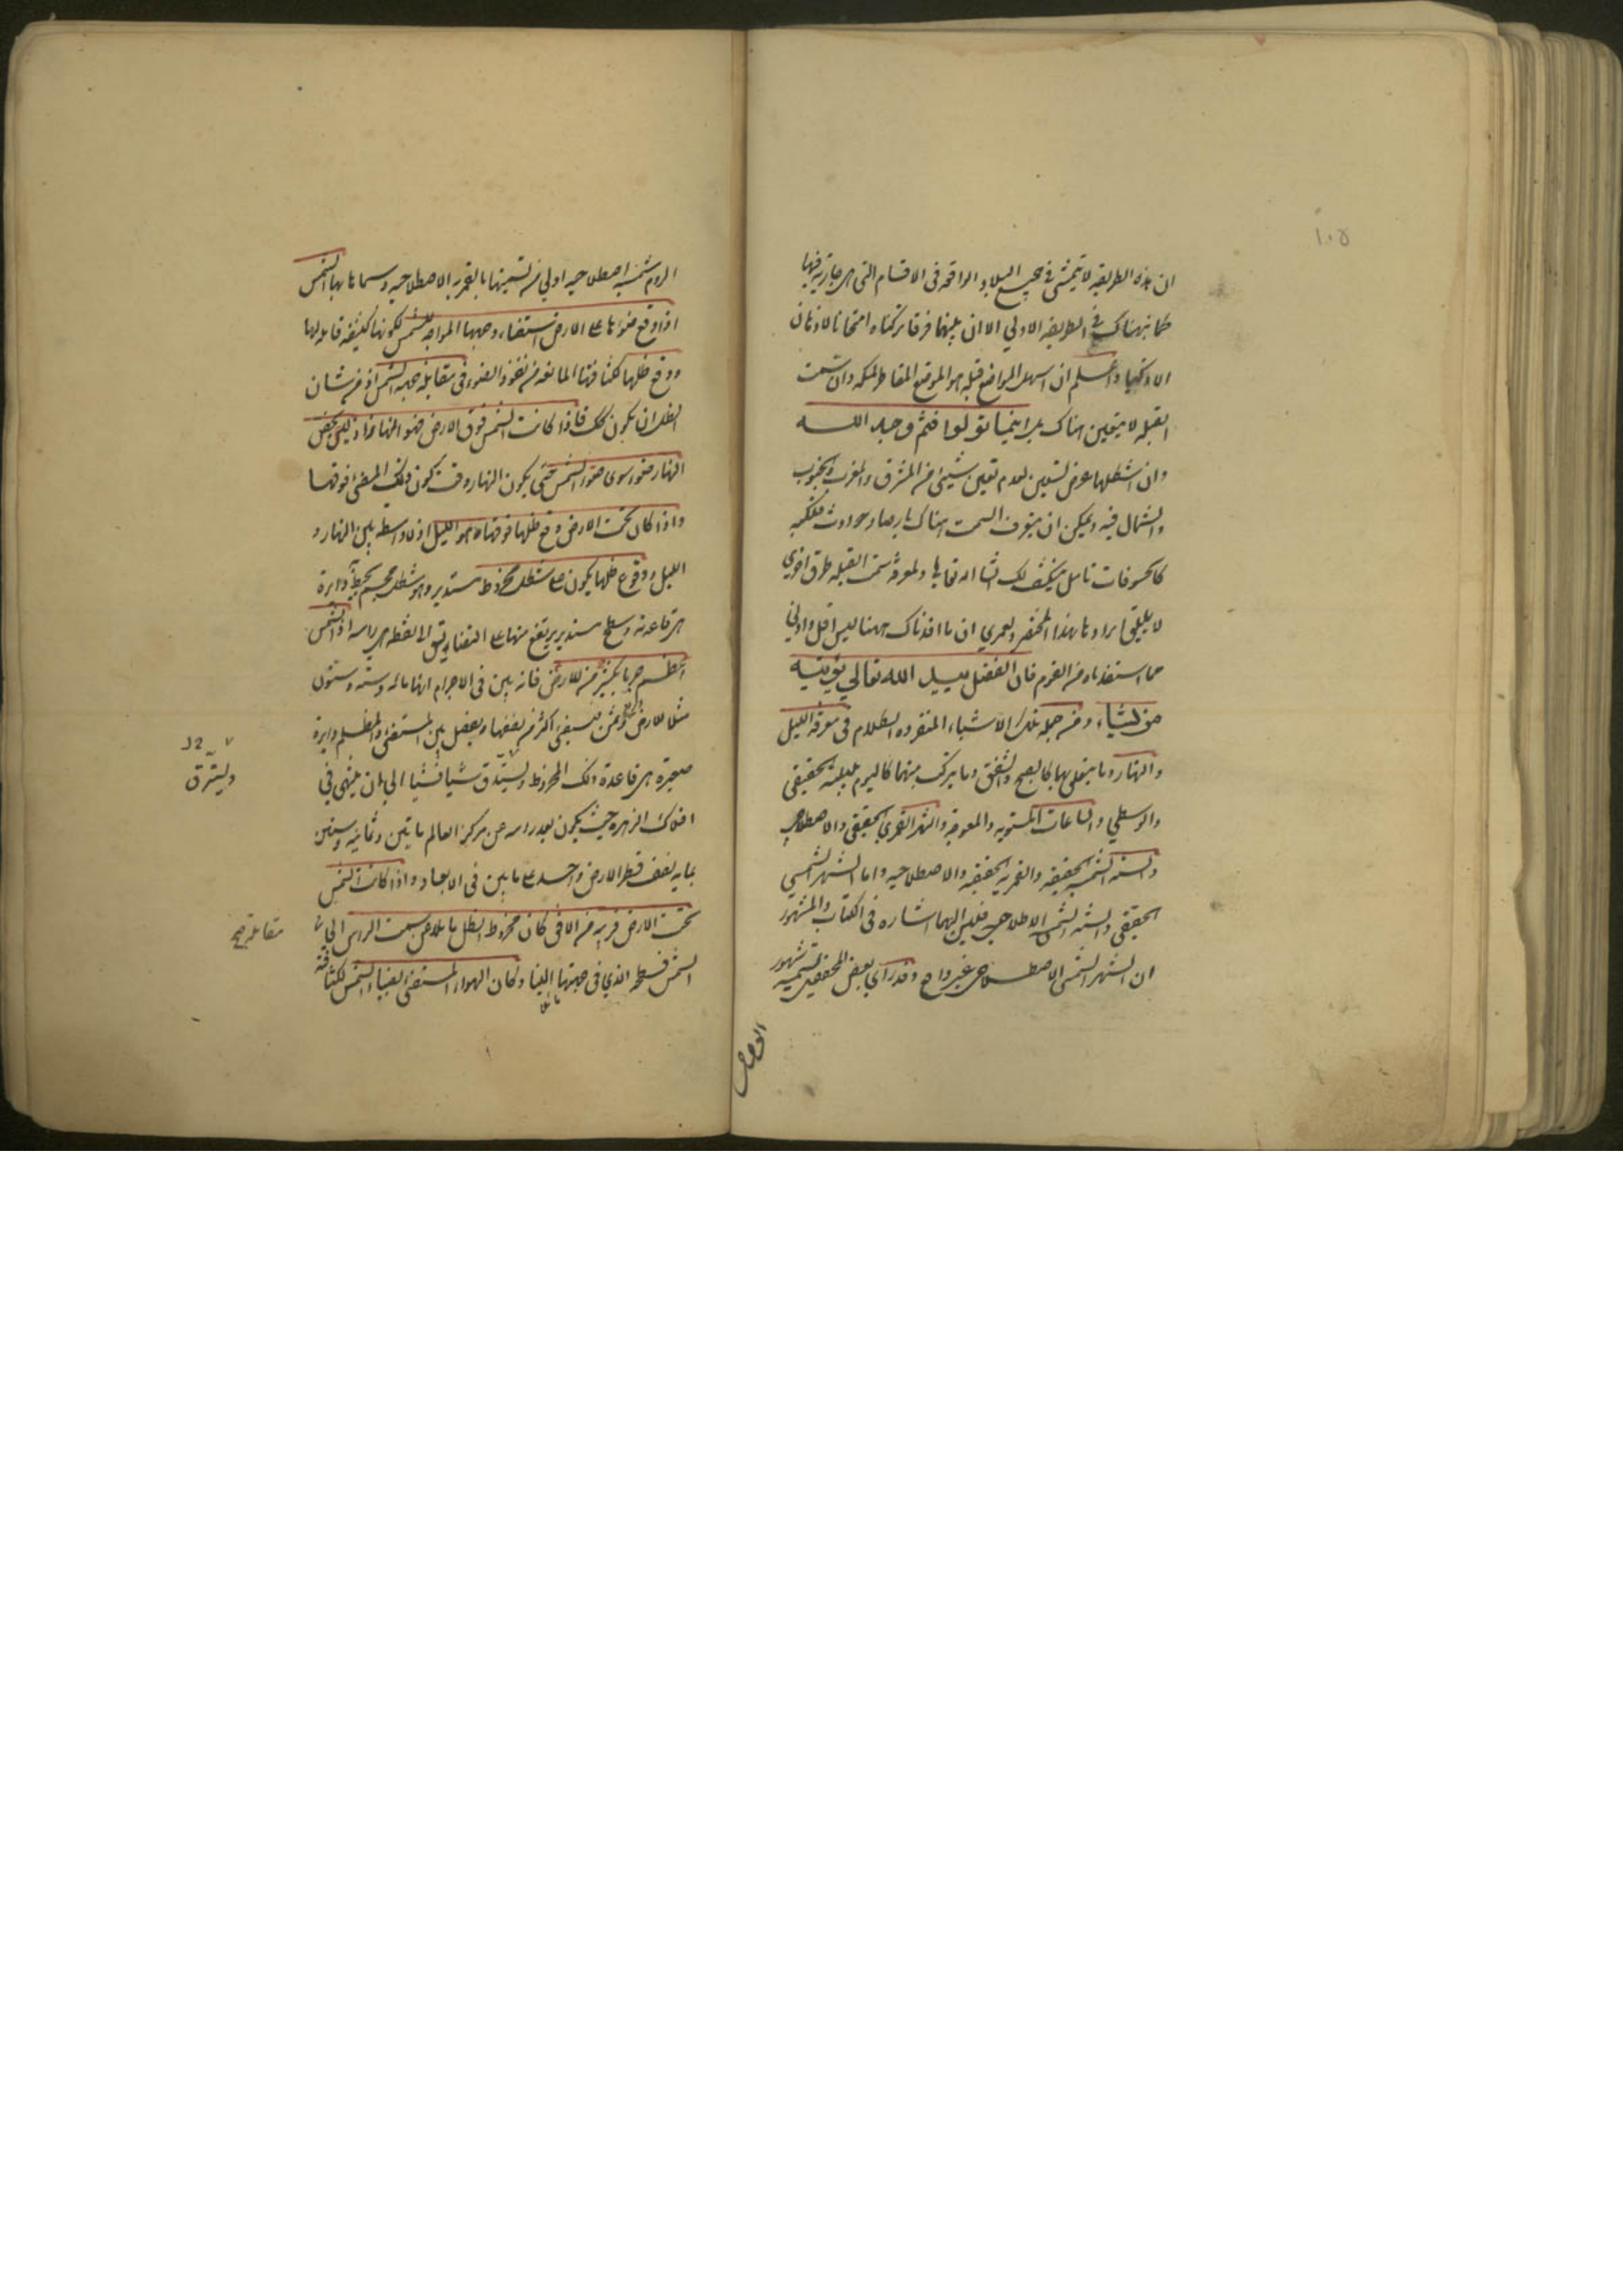 ١٠٥
ان هذه الطريقه لا يتمشى في جميع البلاد الواقعه فى الاقسام التى هى جاريه فيها
كما نبهناك في الطريقه الاولي الا ان بينهما فرقا تركناه امتحانا لاذهان
الاذكيا واعلم ان اسهل المواضع قبله هو الموضع المقاطر لمكه وان سمت
القبله لا يتعين هناك بل اينما تولوا فثم وجه الله
وان اشكلها عرض تسعين لعدم تعين شيئ من المشرق والمغرب والجنوب
والشمال فيه ويمكن ان يتعرف السمت هناك بارصاد حوادث فلكيه
كالخسوفات تامل ينكشف لك انشا الله تعالي ولمعرفة سمت القبله طرق اخري
لا يليق ايرادها بهذا المختصر ولعمري ان ما افدناك ههنا ليس اقل وادني
مما استفدناه من القوم فان الفضل بيد الله تعالي يؤتيه
من يشاء ومن جمله تلك الاشياء المنفرده الكلام فى معرفة الليل
والنهار وما يتعلق بهما كالصبح والشفق وما يتركب منهما كاليوم بليلته الحقيقى
والوسطي والساعات المستويه والمعوجه والشهر القمري الحقيقى والاصطلاحى
والسنه الشمسيه الحقيقيه والقمريه الحقيقيه والاصطلاحيه واما الشهر الشمسي
الحقيقى والسنه الشمسيه الاصطلاحيه فليس اليهما اشاره فى الكتاب والمشهور
ان الشهر الشمسى الاصطلاحى غير واقع وقد راي بعض المحققين تسميه شهور
الروم شمسيه اصطلاحيه اولي من تسميتها بالقمريه الاصطلاحيه وسماها بها الشمس
اذا وقع ضوءها على الارض استضاء وجهها المواجه للشمس لكونها كثيفه قابله لها
ووقع ظلها لكثافتها المانعه من نفوذ الضوء فى مقابله جهة الشمس اذ من شان
الظل ان يكون كك فاذا كانت الشمس فوق الارض فهو النهار اذ ليس يخص
النهار ضوء سوى ضوء الشمس حتى يكون النهار وقت كون ذلك المضئ فوقها
واذا كان تحت الارض وقع ظلها فوقها وهو الليل اذ لا واسطه بين النهار و
الليل ووقوع ظلها يكون على شكل مخروط مستدير وهو شكل مجسم يحيط به دايرة
هى قاعدته وسطح مستدير يرتفع منها على التضايق الى نقطه هى راسه اذ الشمس
اعظم جرما بكثير من الارض فانه بين فى الاجرام انها مائه وسته وستون
مثلا للارض وثمن فيستضئ اكثر من نصفها ويفصل بين المستضئ والمظلم دايرة
صغيرة هى قاعدة ذلك المخروط ويستدق شيا فشيا الي ان ينتهى في
افلاك الزهره حيث يكون بعد راسه عن مركز العالم مايتين وثمانيه وستين
بما به نصف قطر الارض واحد على ما بين فى الابعاد واذا كانت الشمس
تحت الارض قريبه من الافق كان مخروط الظل مايلا عن سمت الراس الي
الشمس فسطحه الذي فى جهتها الينا وكان الهواء المستضئ بضياء الشمس لكثافته